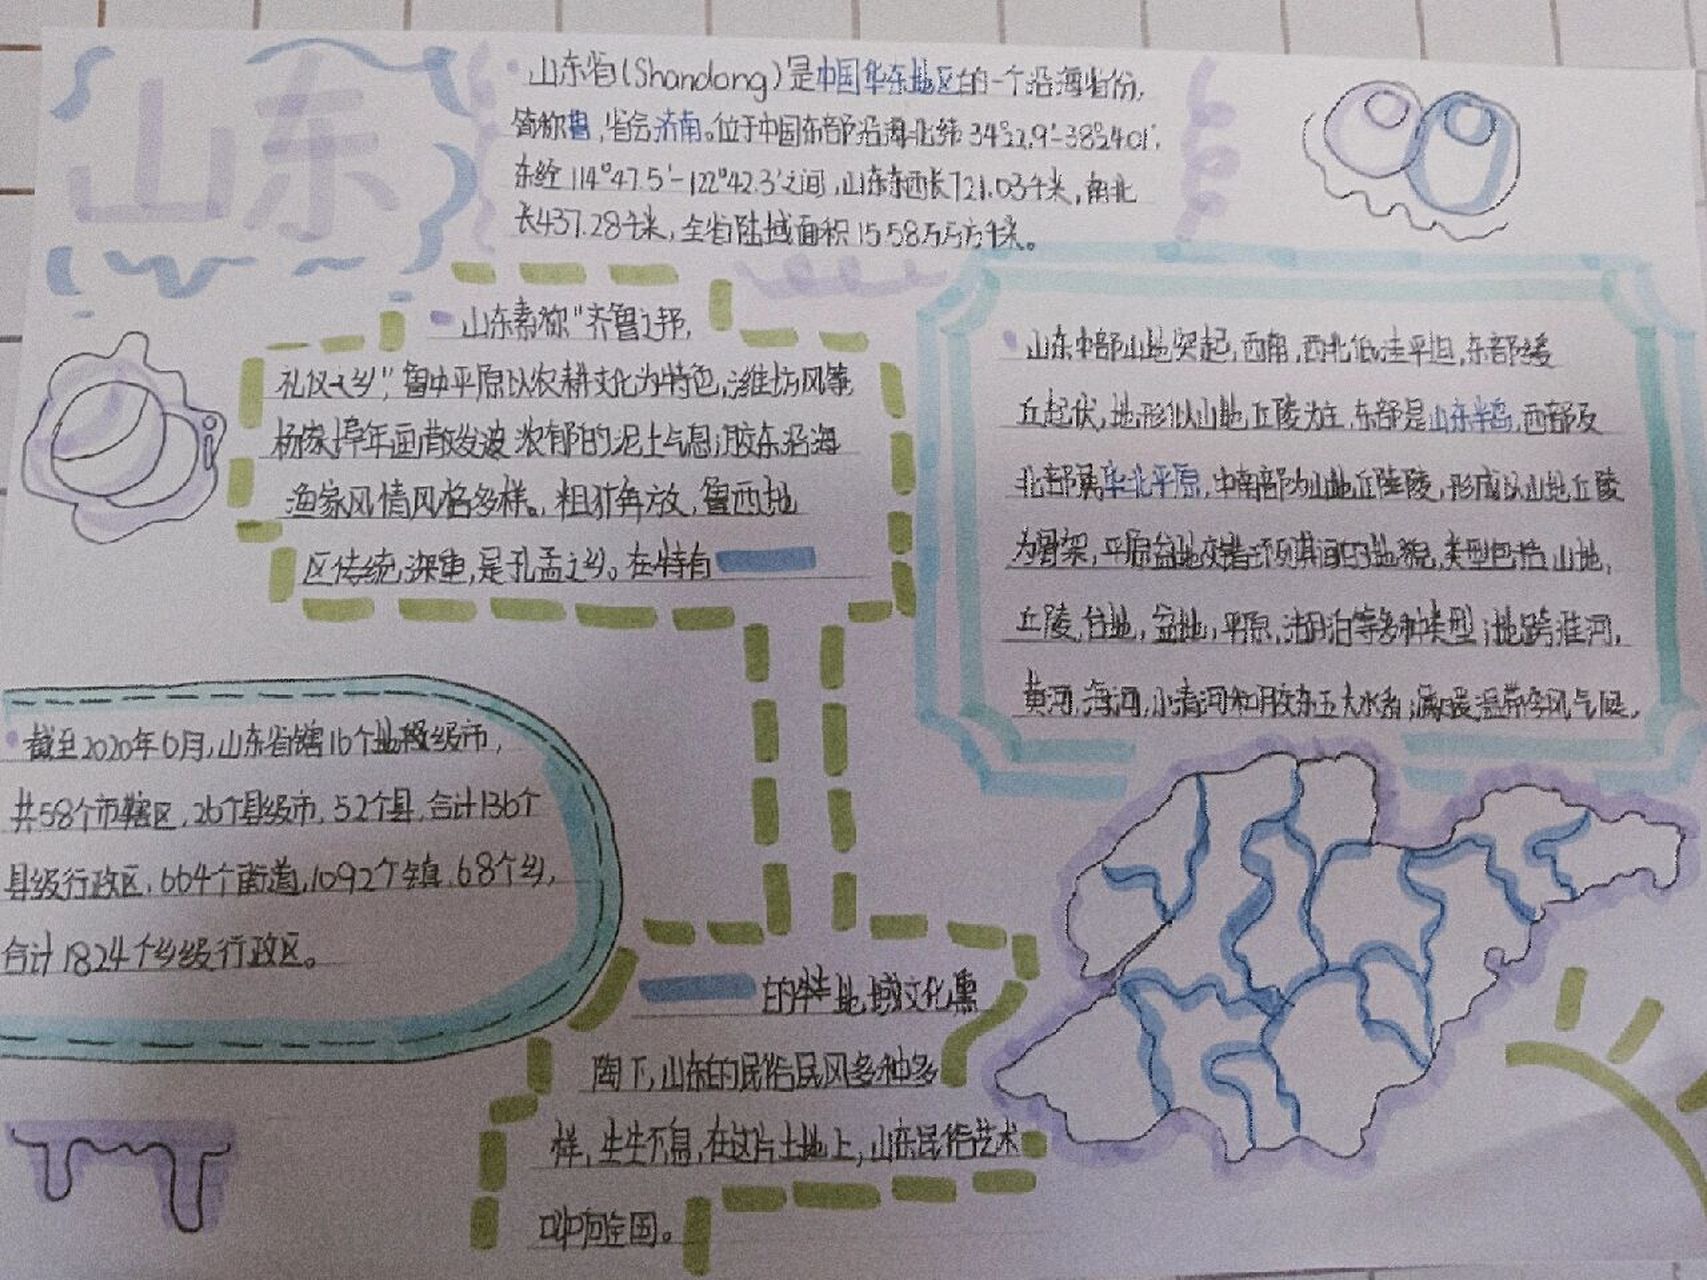 山东
山东省(Shandong)是中国华东地区的一个沿海省份,
简称鲁,省会济南。位于中国东部沿海北纬34°22.9′-38°24.01′,
东经114°47.5′-122°42.3′之间,山东东西长721.03千米,南北
长437.28千米,全省陆域面积15.58万方千米。
山东素称"齐鲁之邦,
礼仪之乡",鲁中平原以农耕文化为特色,潍坊风筝,
杨家埠年画散发浓郁的泥土气息,胶东沿海
渔家风情风格多样。粗犷奔放,鲁西地
区传统深重,是孔孟之乡。在特有
的特地域文化熏
陶下,山东的民俗民风多种多
样,生生不息,在这片土地上,山东民俗艺术
叫响全国。
山东中部山地突起,西南,西北低洼平坦,东部缓
丘起伏,地形以山地丘陵为主,东部是山东半岛,西部及
北部属华北平原,中南部为山地丘陵,形成以山地丘陵
为骨架,平原盆地交错环列其间的地貌,类型包括山地,
丘陵,台地,盆地,平原,湖泊等多种类型;地跨淮河,
黄河,海河,小清河和胶东五大水系;属暖温带季风气候。
截至2020年6月,山东省辖16个地级市,
共58个市辖区,26个县级市,52个县,合计136个
县级行政区,664个街道,1092个镇,68个乡,
合计1824个乡级行政区。